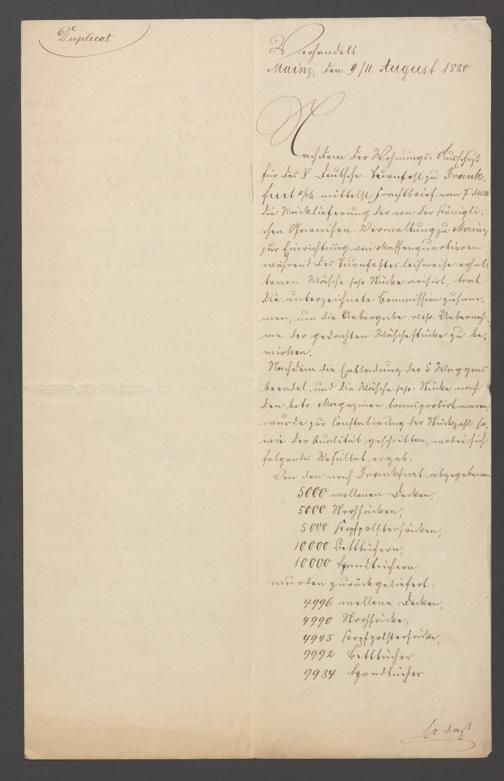 Duplicat
Verhandelt
Mainz, den 9/11. August 1880
Nachdem der Wohnungs-Ausschuß
für das V. deutsche Turnfest zu Frank-
furt a/M mittelst Frachtbrief vom 7. dss
die Rücklieferung der von der Königli-
chen Garnison-Verwaltung zu Mainz
zur Einrichtung von Massenquartieren
während des Turnfestes leihweise erhal-
tenen Wäsche pp. Stücke avisirt, trat
die unterzeichnete Commission zusam-
men, um die Uebergabe resp. Ueberneh-
me der gedachten Wäschestücke zu be-
wirken.
Nachdem die Entladung der 5 Waggons
beendet und die Wäsche pp. Stücke nach
den betr. Magazinen transportirt waren
wurde zur Constatirung der Stückzahl so-
wie der Qualität geschritten, wobei sich
folgendes Resultat ergab:
Von den nach Frankfurt abgegebenen
5000 wollenen Decken,
5000 Strohsäcken,
5000 Kopfpolstersäcken,
10000 Betttüchern,
10000 Handtüchern
wurden zurückgeliefert:
4996 wollene Decken,
4990 Strohsäcke,
4945 Kopfpolstersäcke,
9992 Betttücher
9984 Handtücher
so daß